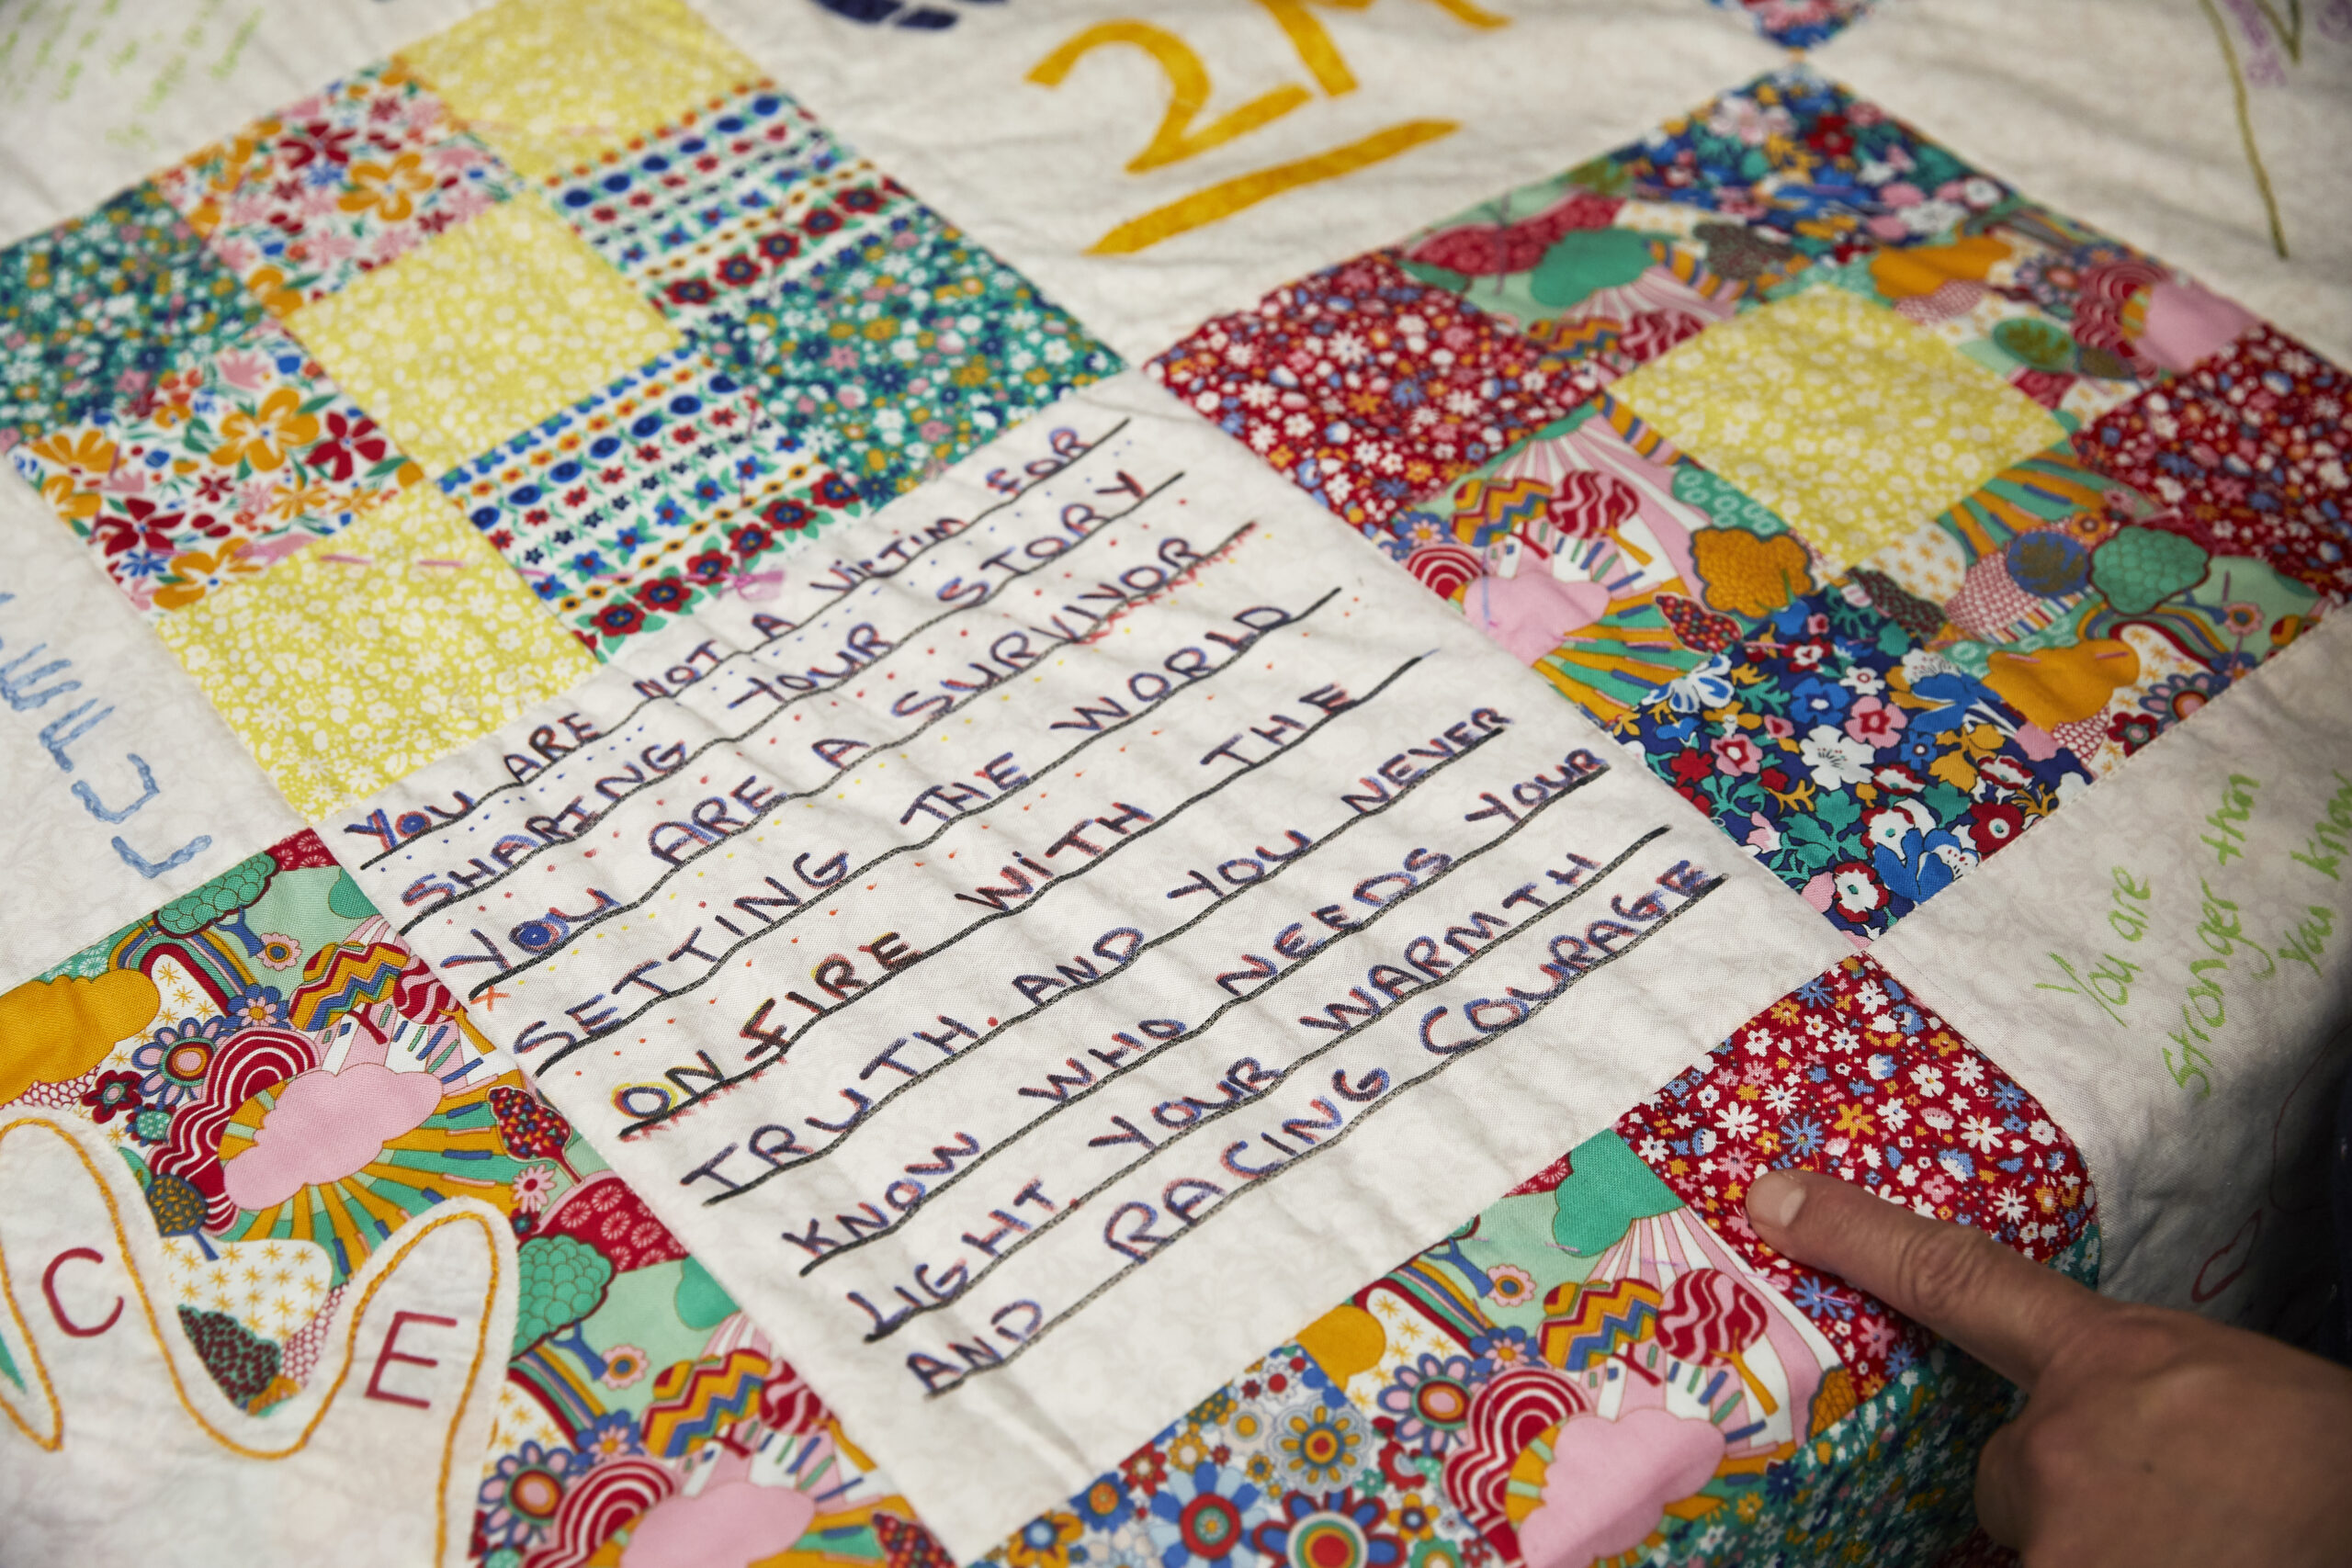 2M
YOU ARE NOT A VICTIM FOR
SHARING YOUR STORY
YOU ARE A SURVIVOR
SETTING THE WORLD
ON FIRE WITH THE
TRUTH. AND YOU NEVER
KNOW WHO NEEDS YOUR
LIGHT. YOUR WARMTH
AND RACING COURAGE
You are
stronger than
you know
C
E